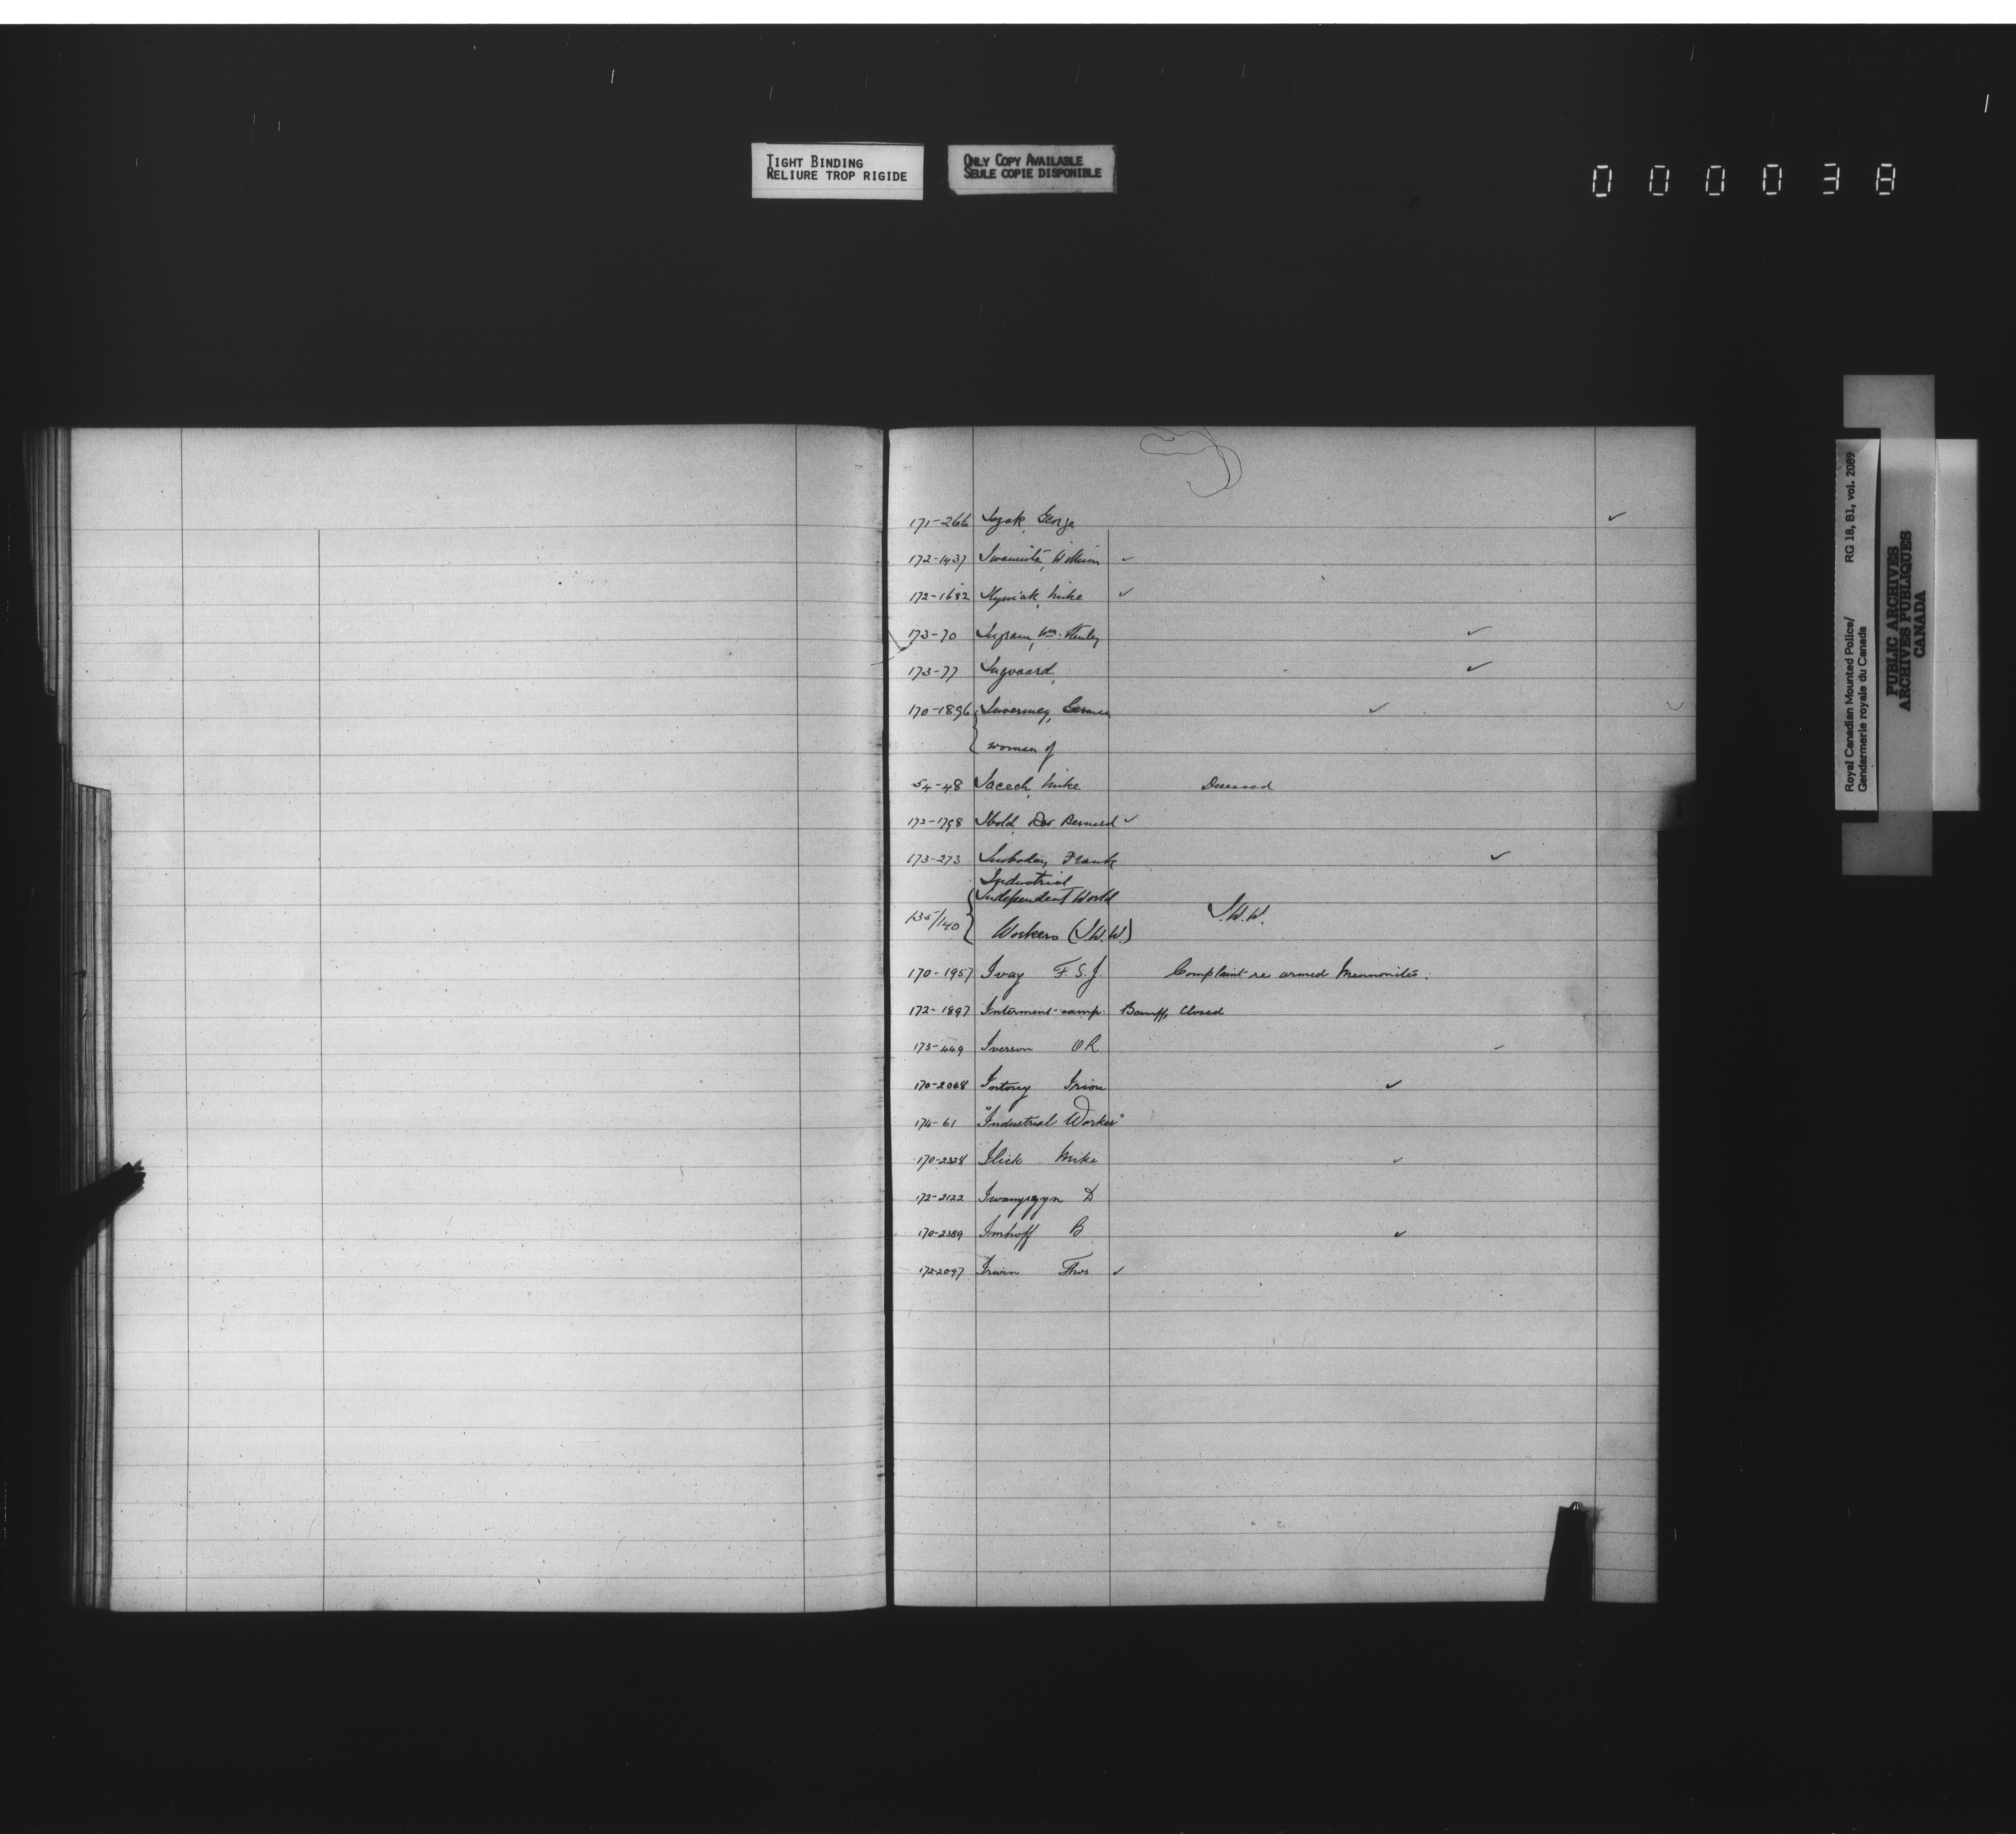 TIGHT BINDING
RELIURE TROP RIGIDE
ONLY COPY AVAILABLE
SEULE COPIE DISPONIBLE
000038
171-266 Iszak, George ✓
172-1437 William ✓
172-1682 Mike ✓
173-70 Ingram, Wm. Henley ✓
173-77 Ingvaard, ✓
170-1896 Invermey, German ✓
woman of
54-48 Iacech, Mike Deceased
172-1798 Ibold, Bernard ✓
173-273 Frank ✓
Industrial
Independent World
135/140 Workers (I.W.W.) I.W.W.
170-1957 Ivay F. S. J. Complaint re armed Mennonites.
172-1897 Internment-camp. Banff, Closed
173-449 Iverson O R ✓
170-2048 Irion ✓
174-61 "Industrial Worker"
170-2328 Ilick Mike ✓
172-2122 D
170-2389 Imhoff B ✓
172-2097 Irwin Thos ✓
I
Royal Canadian Mounted Police/ RG 18, B1, vol. 2089
Gendarmerie royale du Canada
PUBLIC ARCHIVES
ARCHIVES PUBLIQUES
CANADA